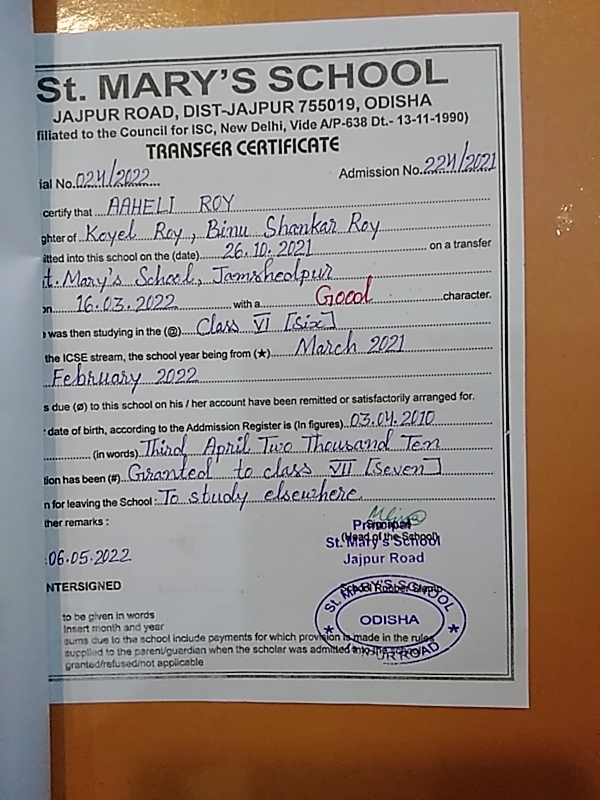 St. MARY'S SCHOOL
JAJPUR ROAD, DIST-JAJPUR 755019, ODISHA
filiated to the Council for ISC, New Delhi, Vide A/P-638 Dt.- 13-11-1990)
TRANSFER CERTIFICATE
ial No. 024/2022 Admission No. 224/2021
certify that AAHELI ROY
ghter of Koyel Roy, Binu Shankar Roy
itted into this school on the (date) 26.10.2021 on a transfer
t. Mary's School, Jamshedpur
on 16.03.2022 with a Good character.
was then studying in the (@) Class VI [Six]
the ICSE stream, the school year being from (★) March 2021
February 2022
s due (ø) to this school on his / her account have been remitted or satisfactorily arranged for.
date of birth, according to the Addmission Register is (In figures) 03.04.2010
(in words) Third April Two Thousand Ten
tion has been (#) Granted to class VII [Seven]
n for leaving the School : To study elsewhere
ther remarks :
Principal
(Head of the School)
St. Mary's School
Jajpur Road
06.05.2022
NTERSIGNED
St. MARY'S SCHOOL
ODISHA
to be given in words
Insert month and year
sums due to the school include payments for which provision is made in the rules
supplied to the parent/guardian when the scholar was admitted into the
granted/refused/not applicable